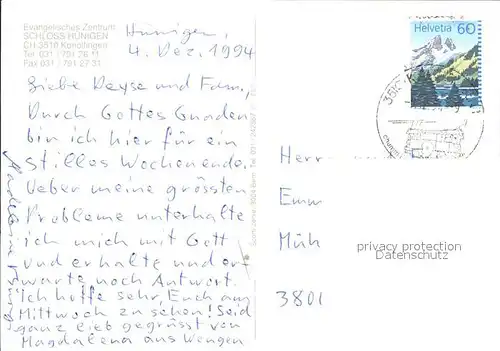 Evangelisches Zentrum
SCHLOSS HÜNIGEN
CH 3510 Konolfingen
Tel 031 / 791 26 11
Fax 031 / 791 27 31
Hünigen,
4. Dez. 1994
Liebe Deyse und Fam.,
Durch Gottes Gnaden
bin ich hier für ein
stilles Wochenende.
Ueber meine grössten
Probleme unterhalte
ich mich mit Gott
und erhalte und er-
warte noch Antwort.
Ich hoffe sehr, Euch am
Mittwoch zu sehen! Seid
ganz lieb gegrüsst von
Magdalena aus Wengen
Helvetia 60
3510
Herr
Emm
Müh
3801
privacy protection
Datenschutz